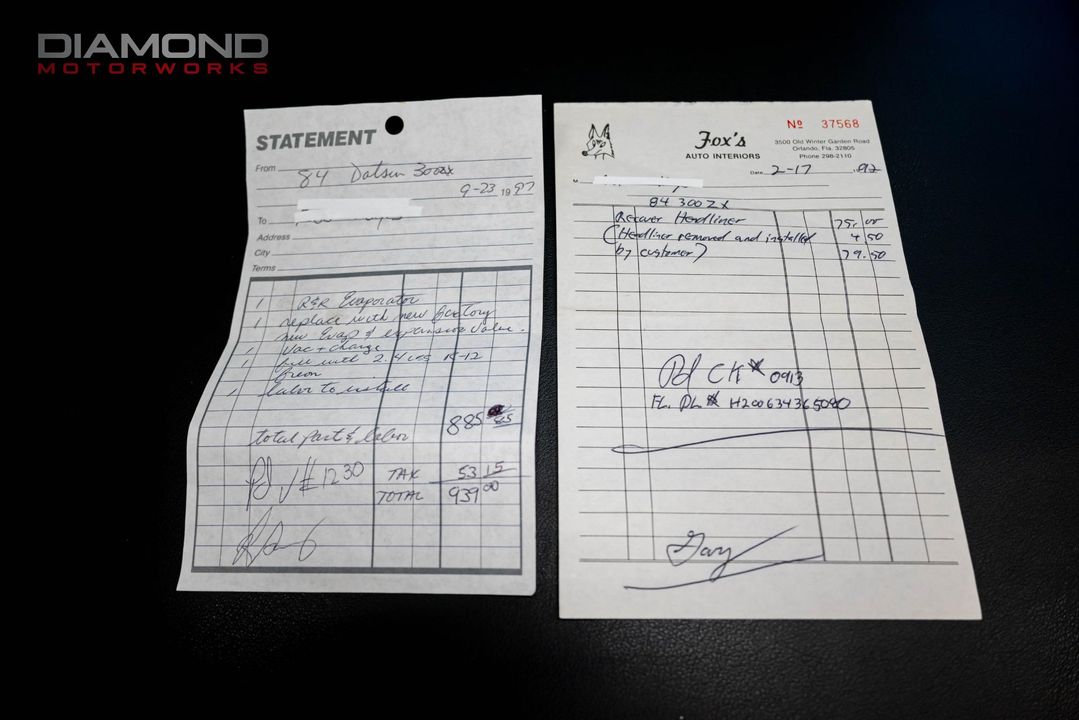 DIAMOND
MOTORWORKS
STATEMENT
From 84 Datsun 300zx
9-23 1997
To
Address
City
Terms
1 R&R Evaporator
1 replace with new factory
new Evap & expansion valve.
1 Vac + charge
1 fill with 2.4 R-12
freon
1 labor to install
total part & labor 885 85
Pd # 1230 TAX 53 15
TOTAL 939 00
Fox's
AUTO INTERIORS
Nº 37568
3500 Old Winter Garden Road
Orlando, Fla. 32805
Phone 298-2110
Date 2-17 1992
M
84 300 ZX
Recover Headliner 75. 00
(Headliner removed and installed 4 50
by customer) 79.50
Pd CK # 0913
FL DL # H200634365090
Gary